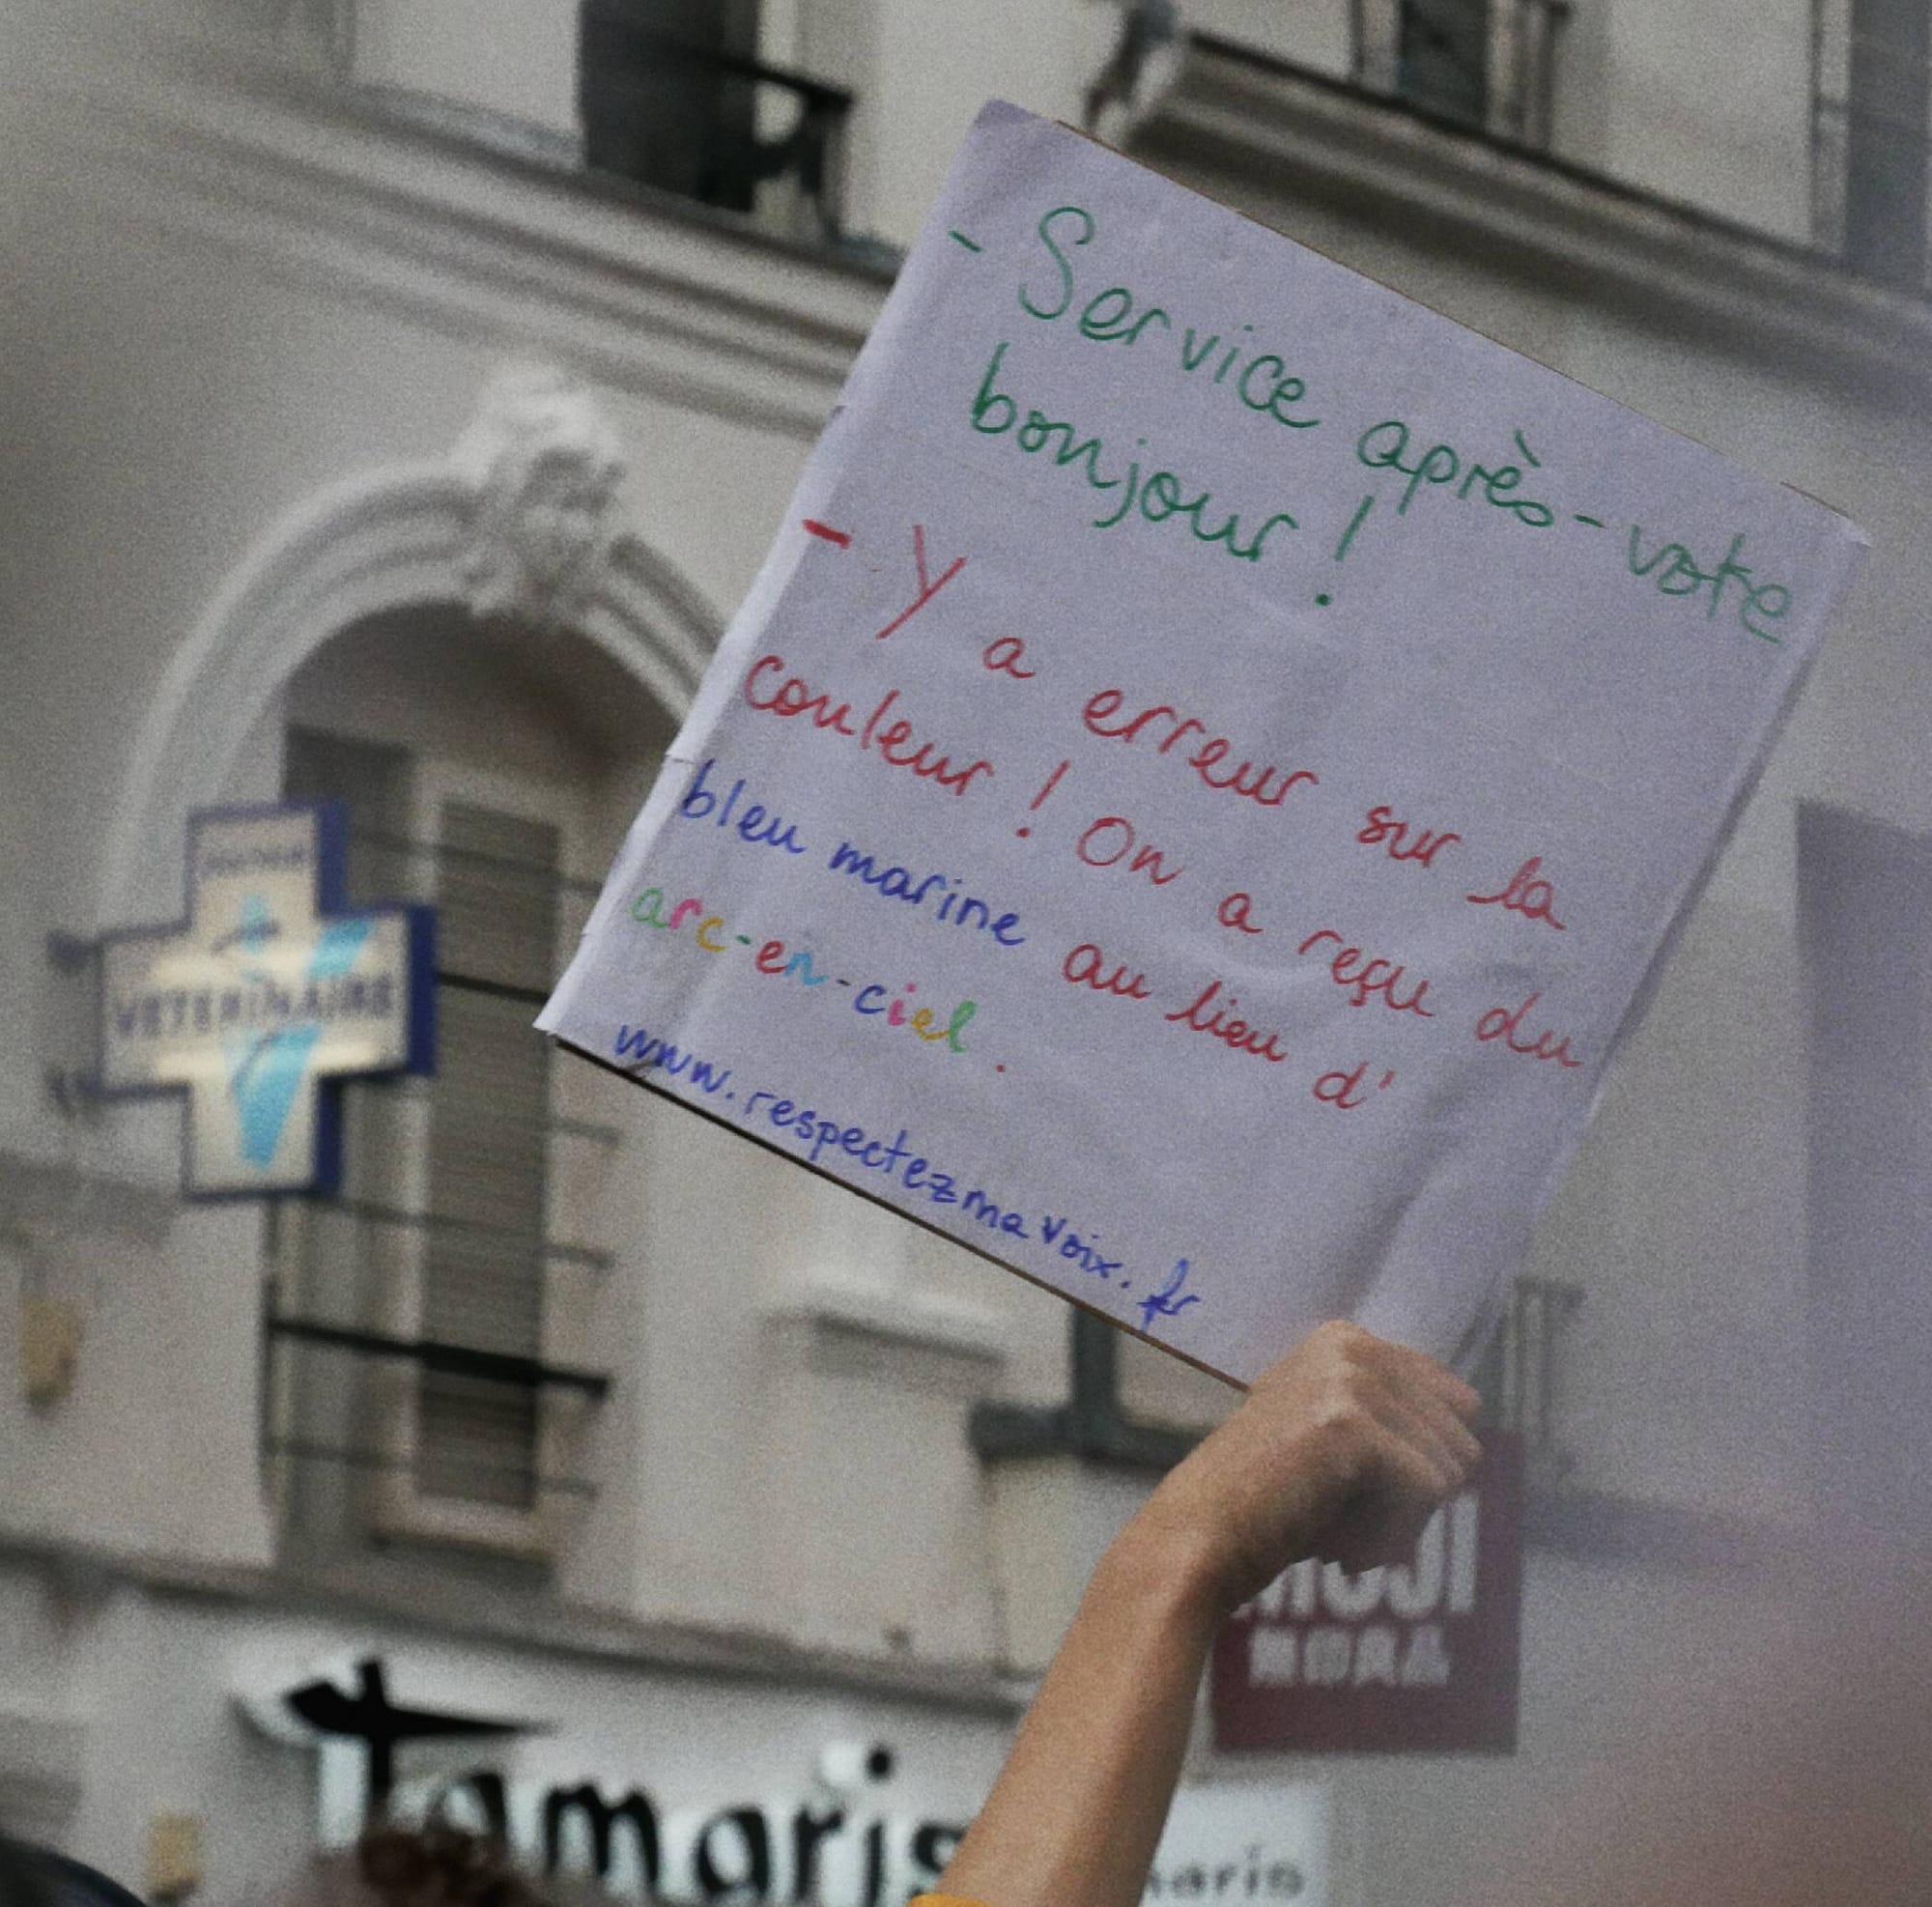 - Service après-vote
bonjour !
- Y a erreur sur la
couleur ! On a reçu du
bleu marine au lieu d'
arc-en-ciel.
www.respectezmavoix.fr
VETERINAIRE
MUJI
無印良品
tamaris